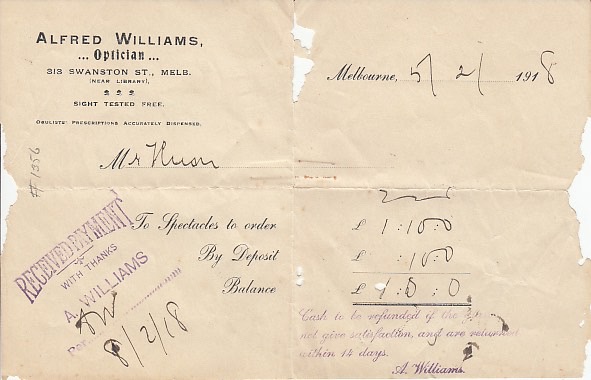 ALFRED WILLIAMS,
... Optician ...
313 SWANSTON ST., MELB.
(NEAR LIBRARY),
SIGHT TESTED FREE.
OCULISTS' PRESCRIPTIONS ACCURATELY DISPENSED.
Melbourne, 5/2/ 1918
Mr
#1356
To Spectacles to order £ 1:10:0
By Deposit £ :10:0
Balance £ 1:0:0
RECEIVED PAYMENT
WITH THANKS
A. WILLIAMS
Per AW
8/2/18
Cash to be refunded if the
not give satisfaction, and are returned
within 14 days.
A. Williams.